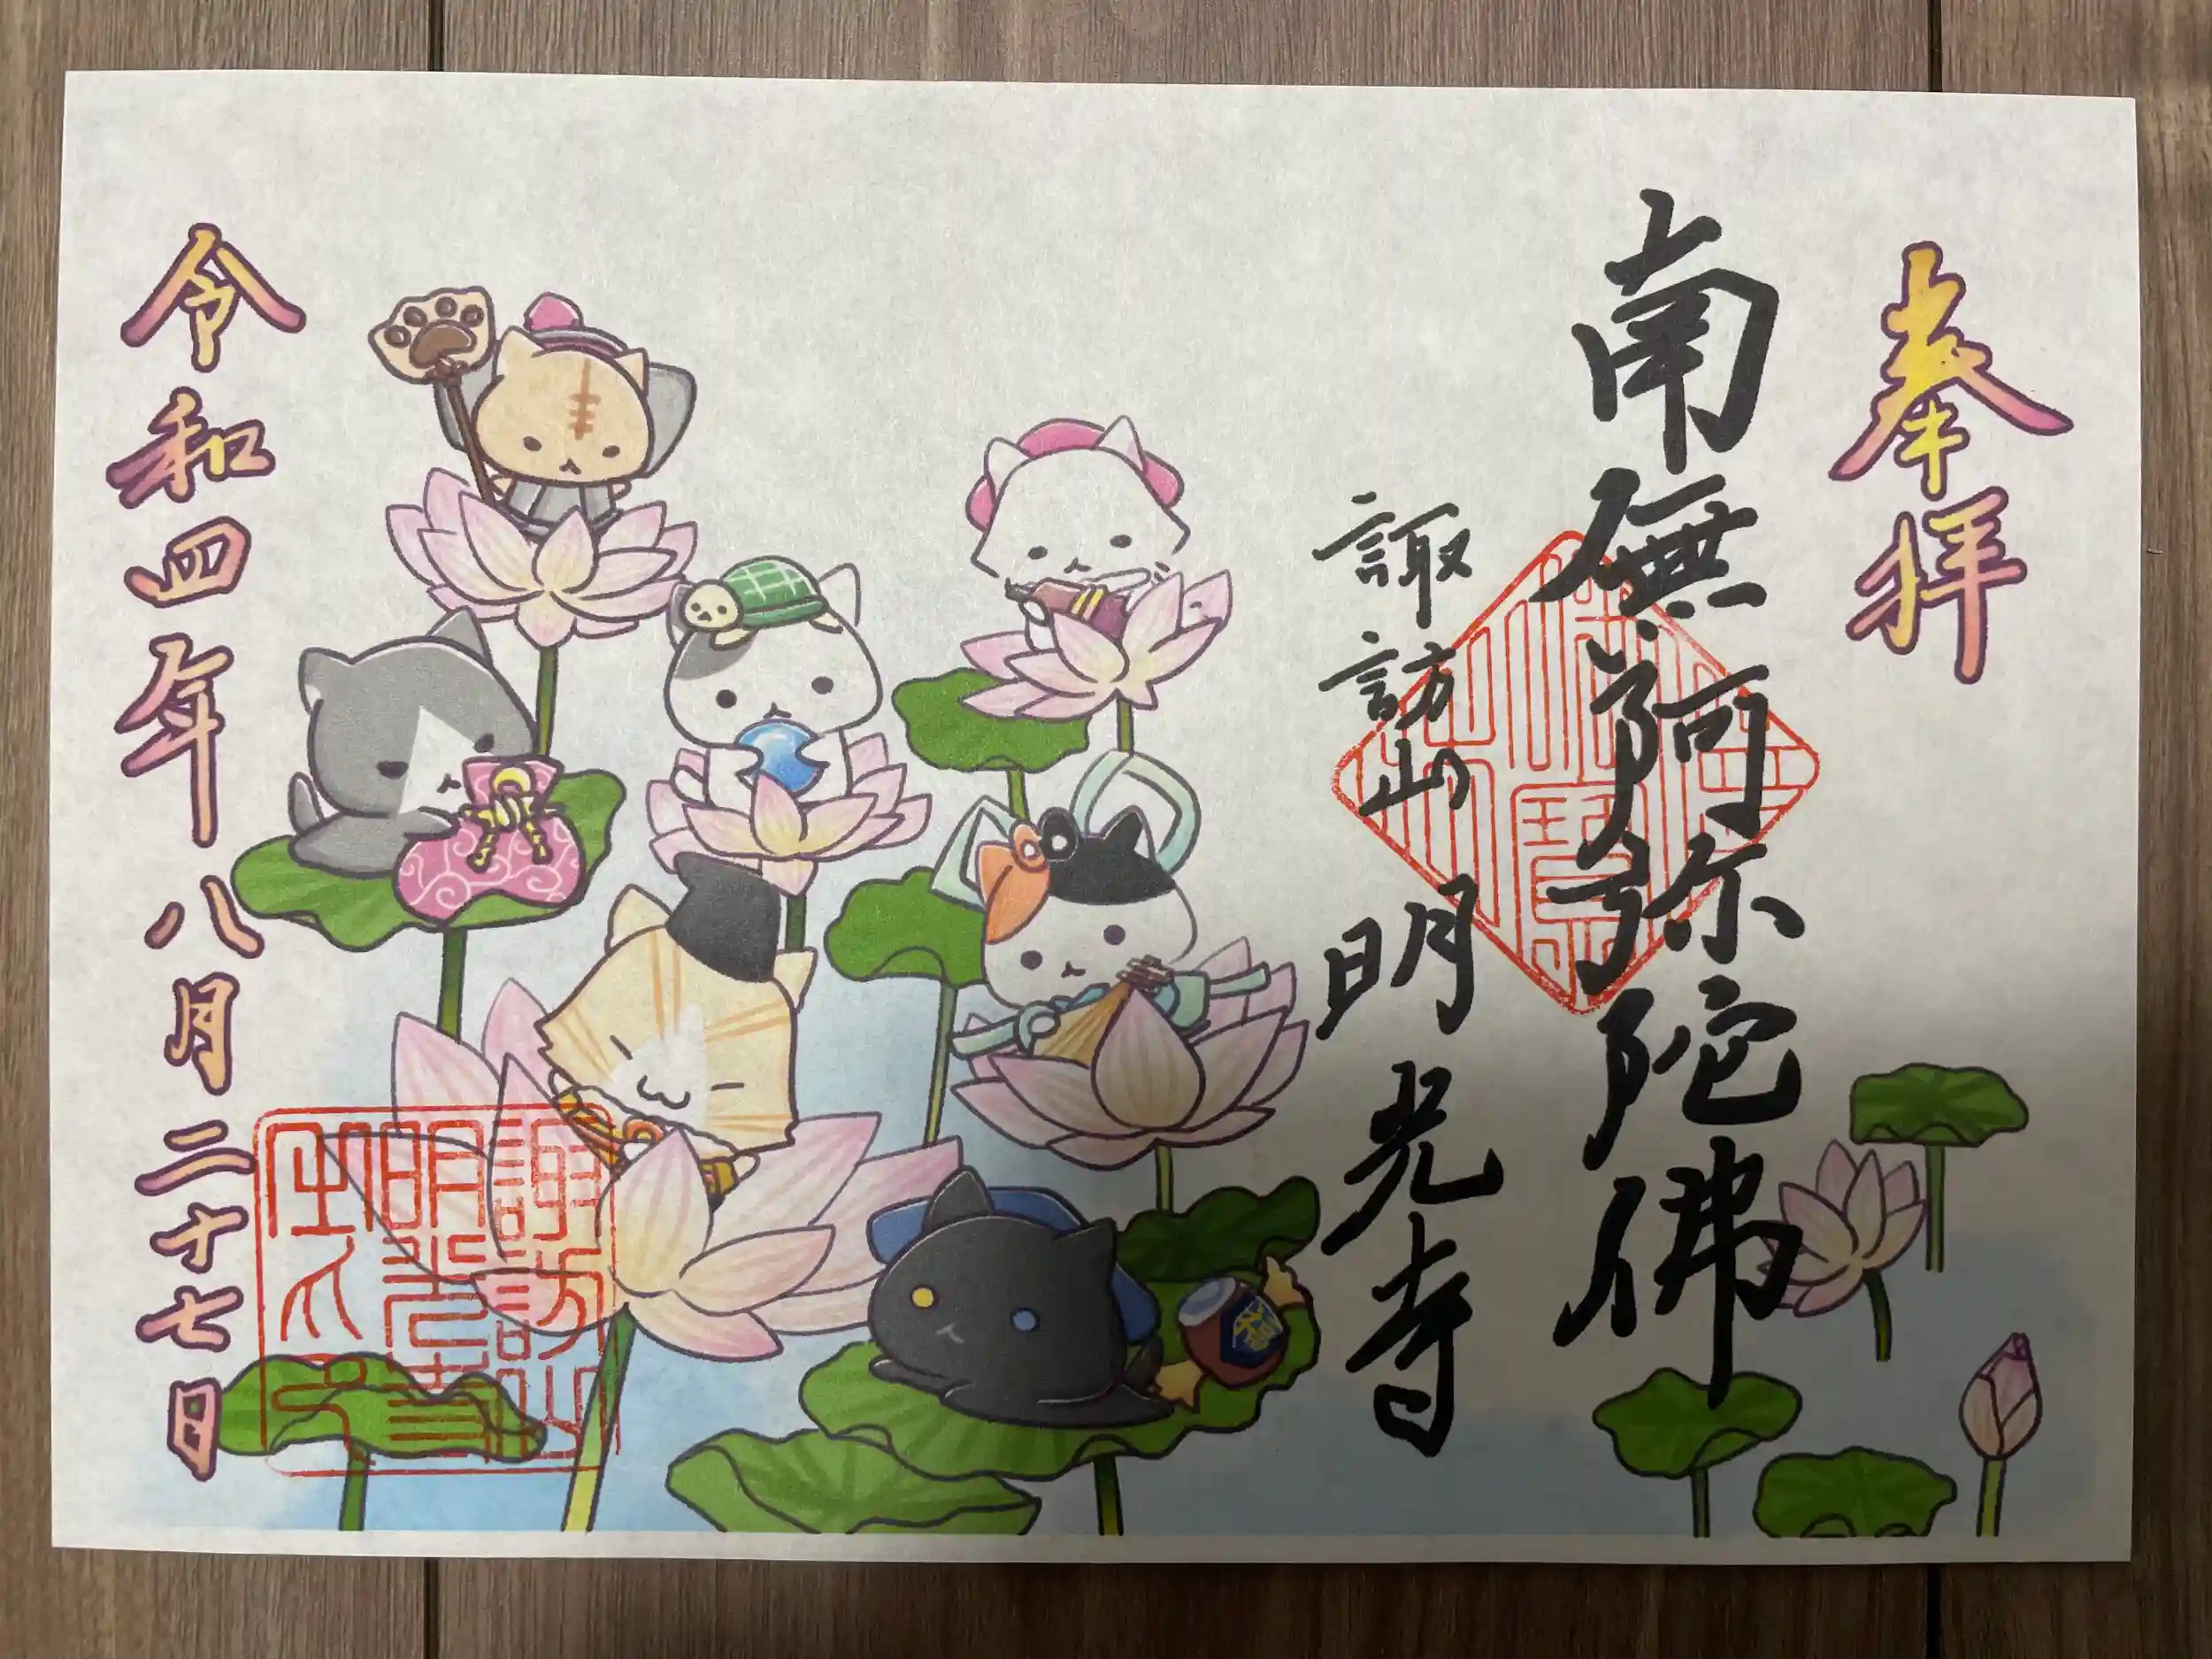 奉拝
南無阿弥陀佛
諏訪山 明光寺
令和四年八月二十七日
諏訪山
明光寺